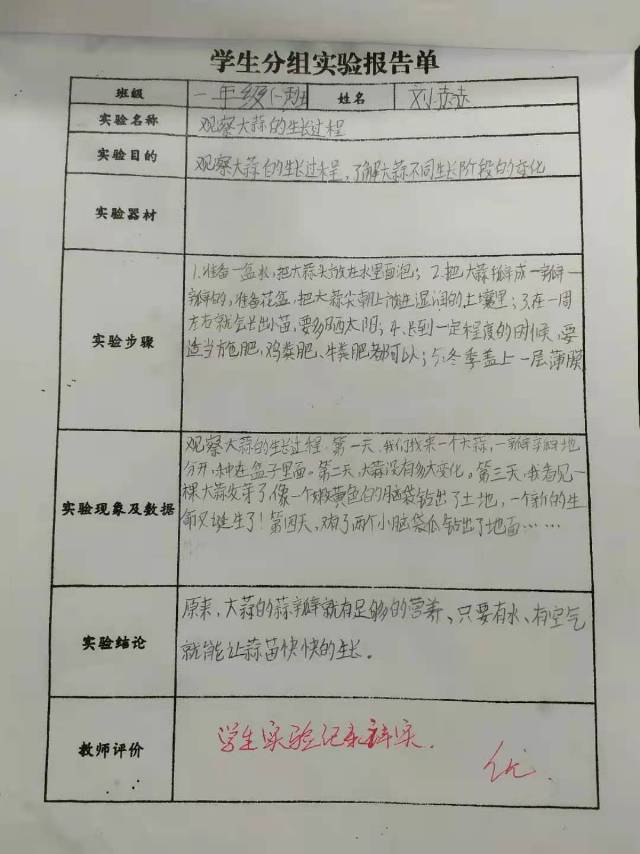 学生分组实验报告单
班级 一年级(一)班 姓名
实验名称 观察大蒜的生长过程
实验目的 观察大蒜的生长过程,了解大蒜不同生长阶段的变化
实验器材
实验步骤
1.准备一盆水,把大蒜头放在水里面泡;2.把大蒜掰成一瓣一
瓣的,准备花盆,把大蒜尖朝上放进湿润的土壤里;3.在一周
左右就会长出小苗,要多晒太阳;4.长到一定程度的时候,要
适当施肥,鸡粪肥、牛粪肥都可以;5.冬季盖上一层薄膜
实验现象及数据
观察大蒜的生长过程:第一天,我们找来一个大蒜,一瓣瓣地
分开,种在盆子里面。第二天,大蒜没有多大变化。第三天,我看见一
棵大蒜发芽了,像一个嫩黄色的脑袋钻出了土地,一个新的生
命又诞生了!第四天,又有了两个小脑袋瓜钻出了地面……
实验结论
原来,大蒜的蒜瓣就有足够的营养、只要有水、有空气
就能让蒜苗快快的生长。
教师评价
学生实验记录详实.
优.